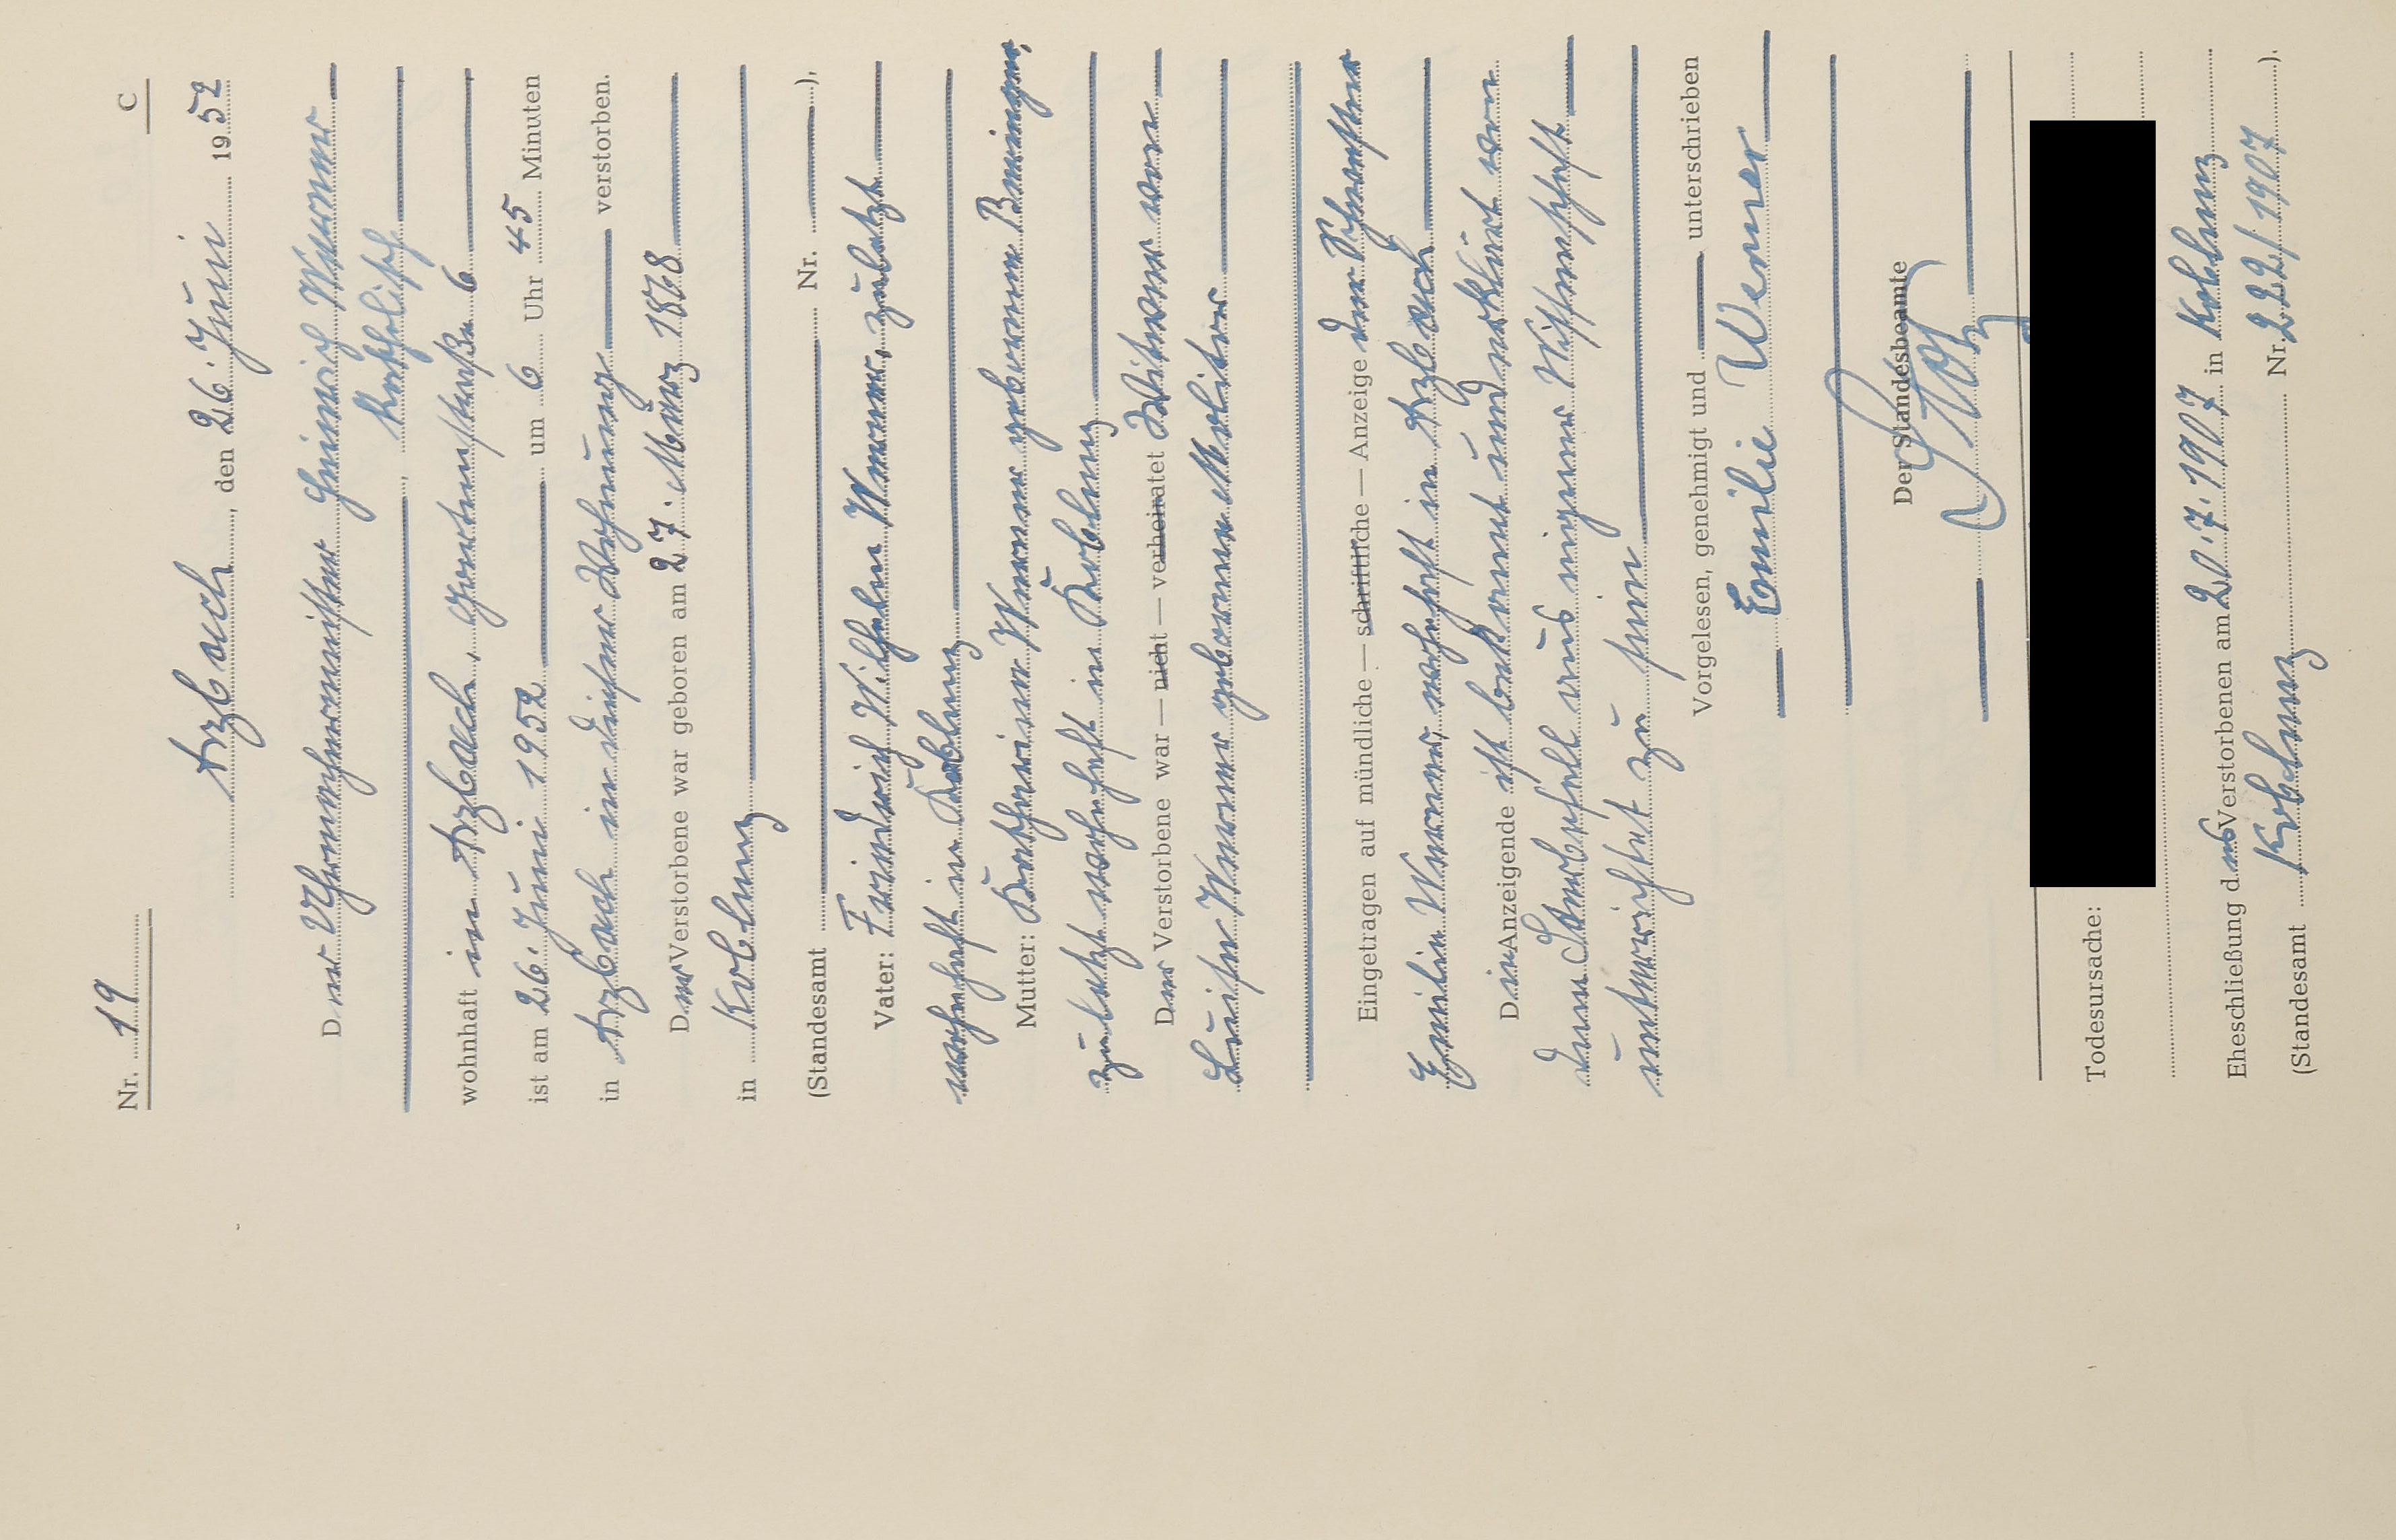 C
Nr. 19
Arzbach, den 26. Juni 1952
Der Uhrmachermeister Heinrich Werner
, katholisch
wohnhaft in Arzbach, Gartenstraße 6
ist am 26. Juni 1952 um 6 Uhr 45 Minuten
in Arzbach in dieser Wohnung verstorben.
Der Verstorbene war geboren am 27. März 1878
in Koblenz
(Standesamt Nr. ).
Vater: Friedrich Wilhelm Werner, zuletzt
wohnhaft in Koblenz
Mutter: Katharina Werner geborene Breininger,
zuletzt wohnhaft in Koblenz
Der Verstorbene war — nicht — verheiratet Witwer von
Luise Werner geborene Melider
Eingetragen auf mündliche — schriftliche — Anzeige der Schwester
Emilie Werner, wohnhaft in Arzbach
Die Anzeigende ist bekannt und erklärt von
dem Sterbefall aus eigener Wissenschaft
unterrichtet zu sein
Vorgelesen, genehmigt und unterschrieben
Emilie Werner
Der Standesbeamte
Todesursache:
Eheschließung des Verstorbenen am 20.7.1907 in Koblenz
(Standesamt Koblenz Nr. 222/1907 ).